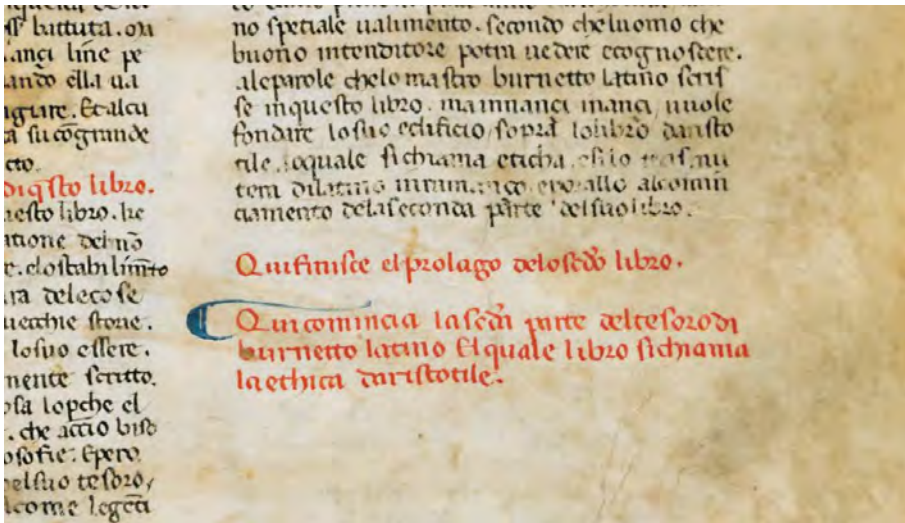 ss battuta. ou
.anci line pe
ando ella ua
agiare. Et alcu
ta su cõgrande
cto.
diq̃sto libro.
uesto libro. he
atione del nõ
e. elostabilim̃to
ra delecose
uecchie storie.
losuo essere.
mente scritto.
osa lopche el
. che accio biso
osofie. Epero.
elsuo tesoro,
icome legeti
no speciale ualimento. secondo cheluomo che
buono intenditore potra uedere ecognoscere.
aleparole chelo mastro burnetto latino scris
se inquesto libro. mainnanci inanci, uuole
fondare losuo edificio sopra lolibro daristo
tile. loquale sichiama eticha. esilo trasmu
tera dilatino inromanço. eporallo alcomin
ciamento delaseconda parte delsuolibro.
Quifinisce elprolago delosc̃do libro.
Quicomincia lasec̃da parte deltesorodi
burnetto latino Elquale libro sichiama
laethica daristotile.